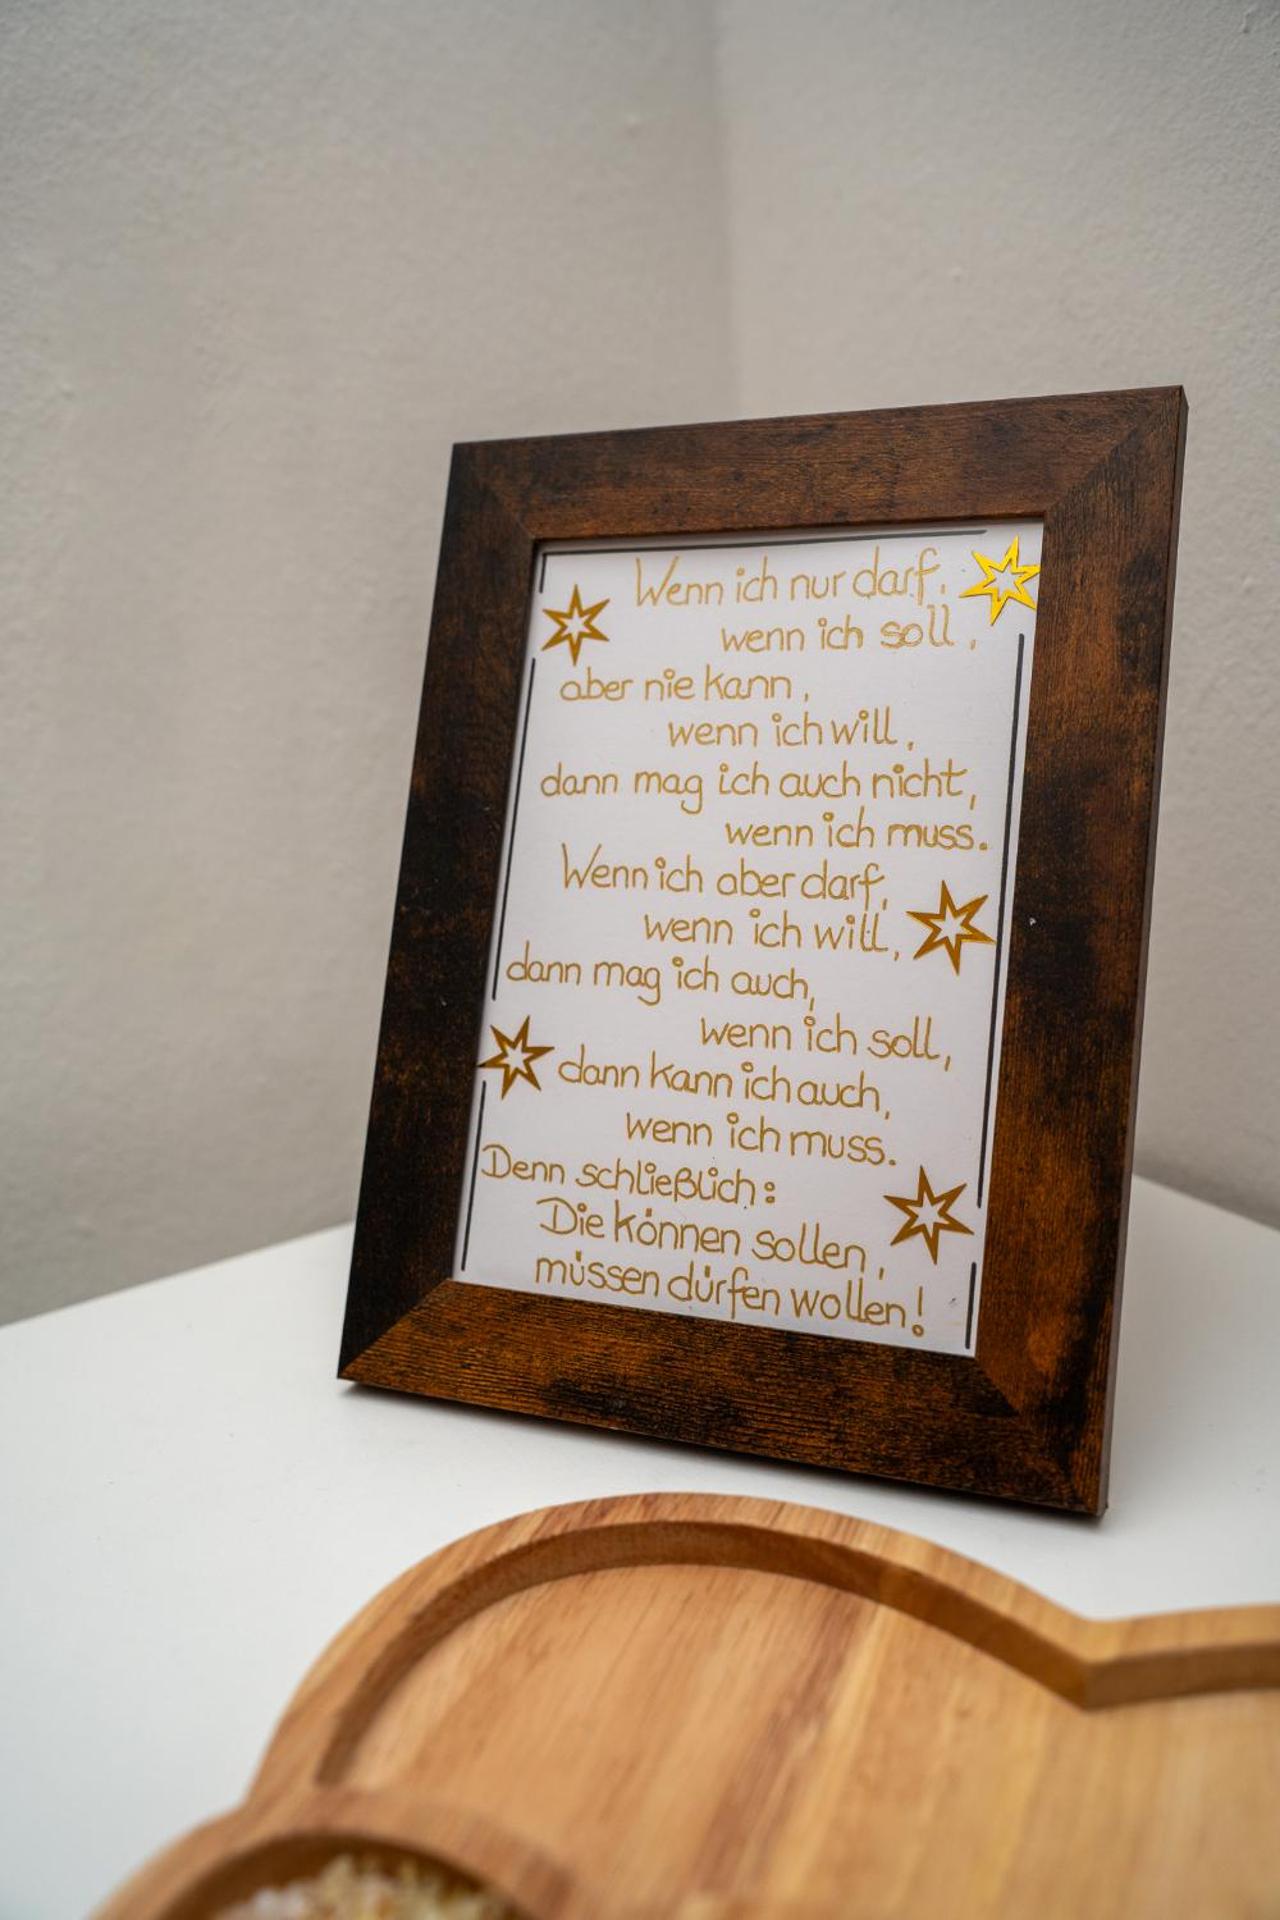 Wenn ich nur darf,
wenn ich soll,
aber nie kann,
wenn ich will,
dann mag ich auch nicht,
wenn ich muss.
Wenn ich aber darf,
wenn ich will,
dann mag ich auch,
wenn ich soll,
dann kann ich auch,
wenn ich muss.
Denn schließlich:
Die können sollen,
müssen dürfen wollen!